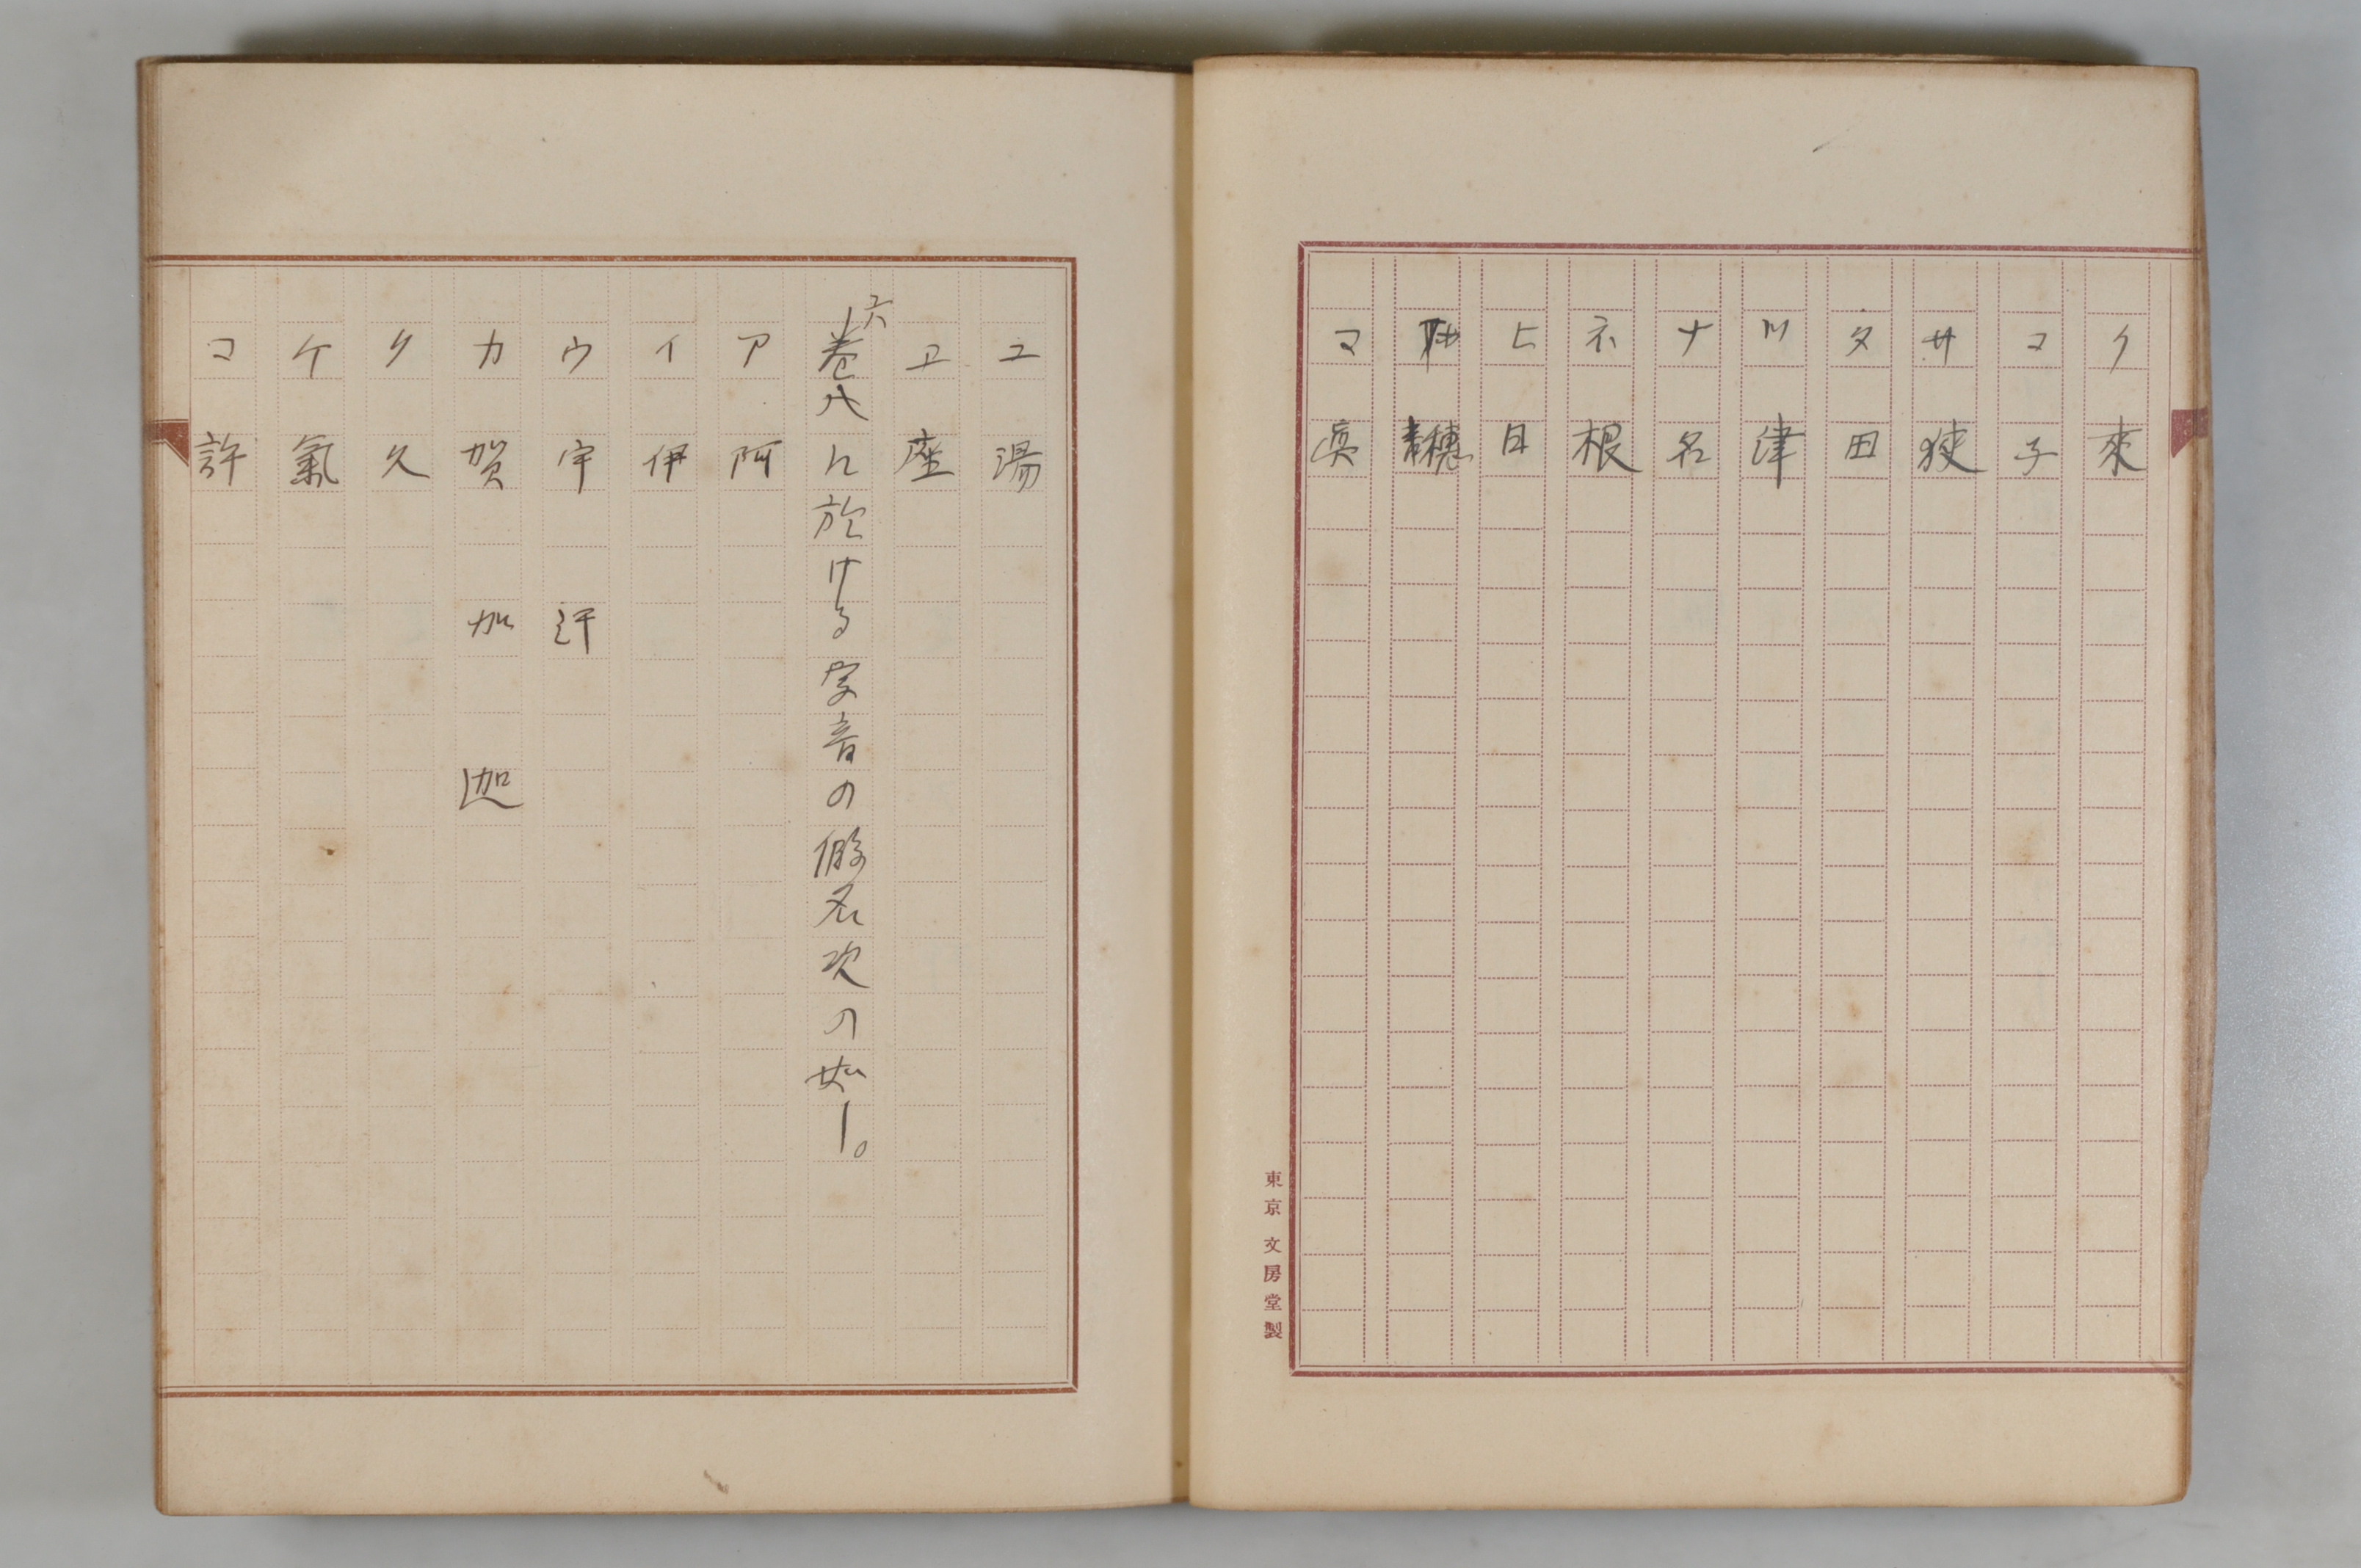 ク 來
コ 子
サ 狭
タ 田
ツ 津
ナ 名
ネ 根
ヒ 日
ホ 穗
マ 眞
東京 文房堂製
ユ 湯
ヱ 座
六、卷八に於ける字音の假名次の如し。
ア 阿
イ 伊
ウ 宇 汙
カ 賀 加 迦
ク 久
ケ 氣
コ 許